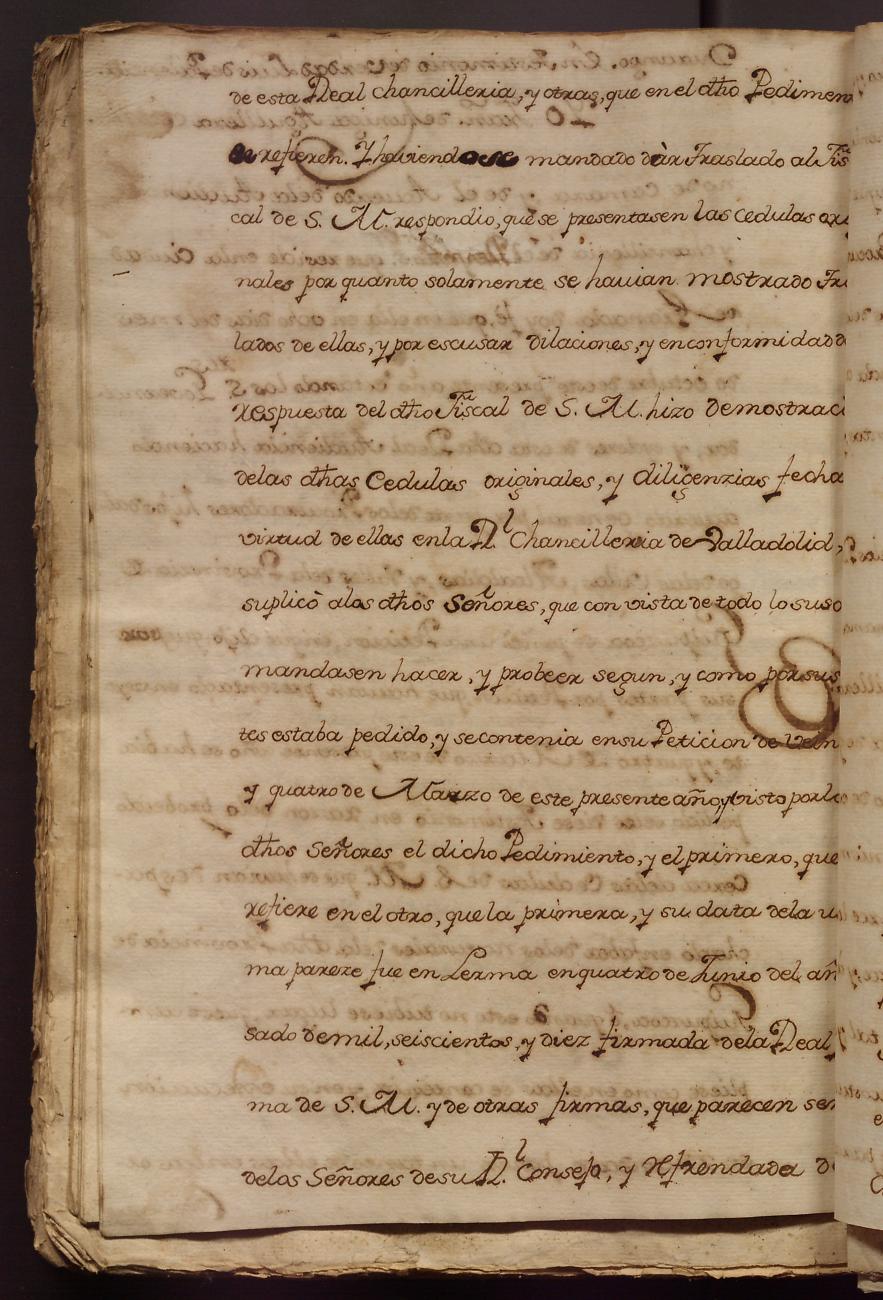 de esta Real chancilleria, y otras, que en el dho Pedimen
se refieren. Y haviendose mandado dàr Traslado al Fis
cal de S. M. respondio, que se presentasen las cedulas ori
nales por quanto solamente se havian mostrado Tra
lados de ellas, y por escusar dilaciones, y en conformidad de
respuesta del dho Fiscal de S. M. hizo demostraci
delas dhas Cedulas originales, y diligenzias fecha
virtud de ellas enla Rl. Chancilleria de Valladolid,
suplicò alos dhos Señores, que con vista de todo lo suso
mandasen hacer, y probeer segun, y como por sus
tes estaba pedido, y secontenia ensu Peticion de Vein
y quatro de Marzo de este presente año, y visto por lo
dhos Señores el dicho Pedimiento, y el primero, que
refiere en el otro, que la primera, y su data dela u
ma pareze fue en Lerma enquatro de Junio del añ
sado demil, seiscientos, y diez firmada dela Real
ma de S. M. y de otras firmas, que parecen ser
delos Señores desu Rl. Consejo, y Refrendada de